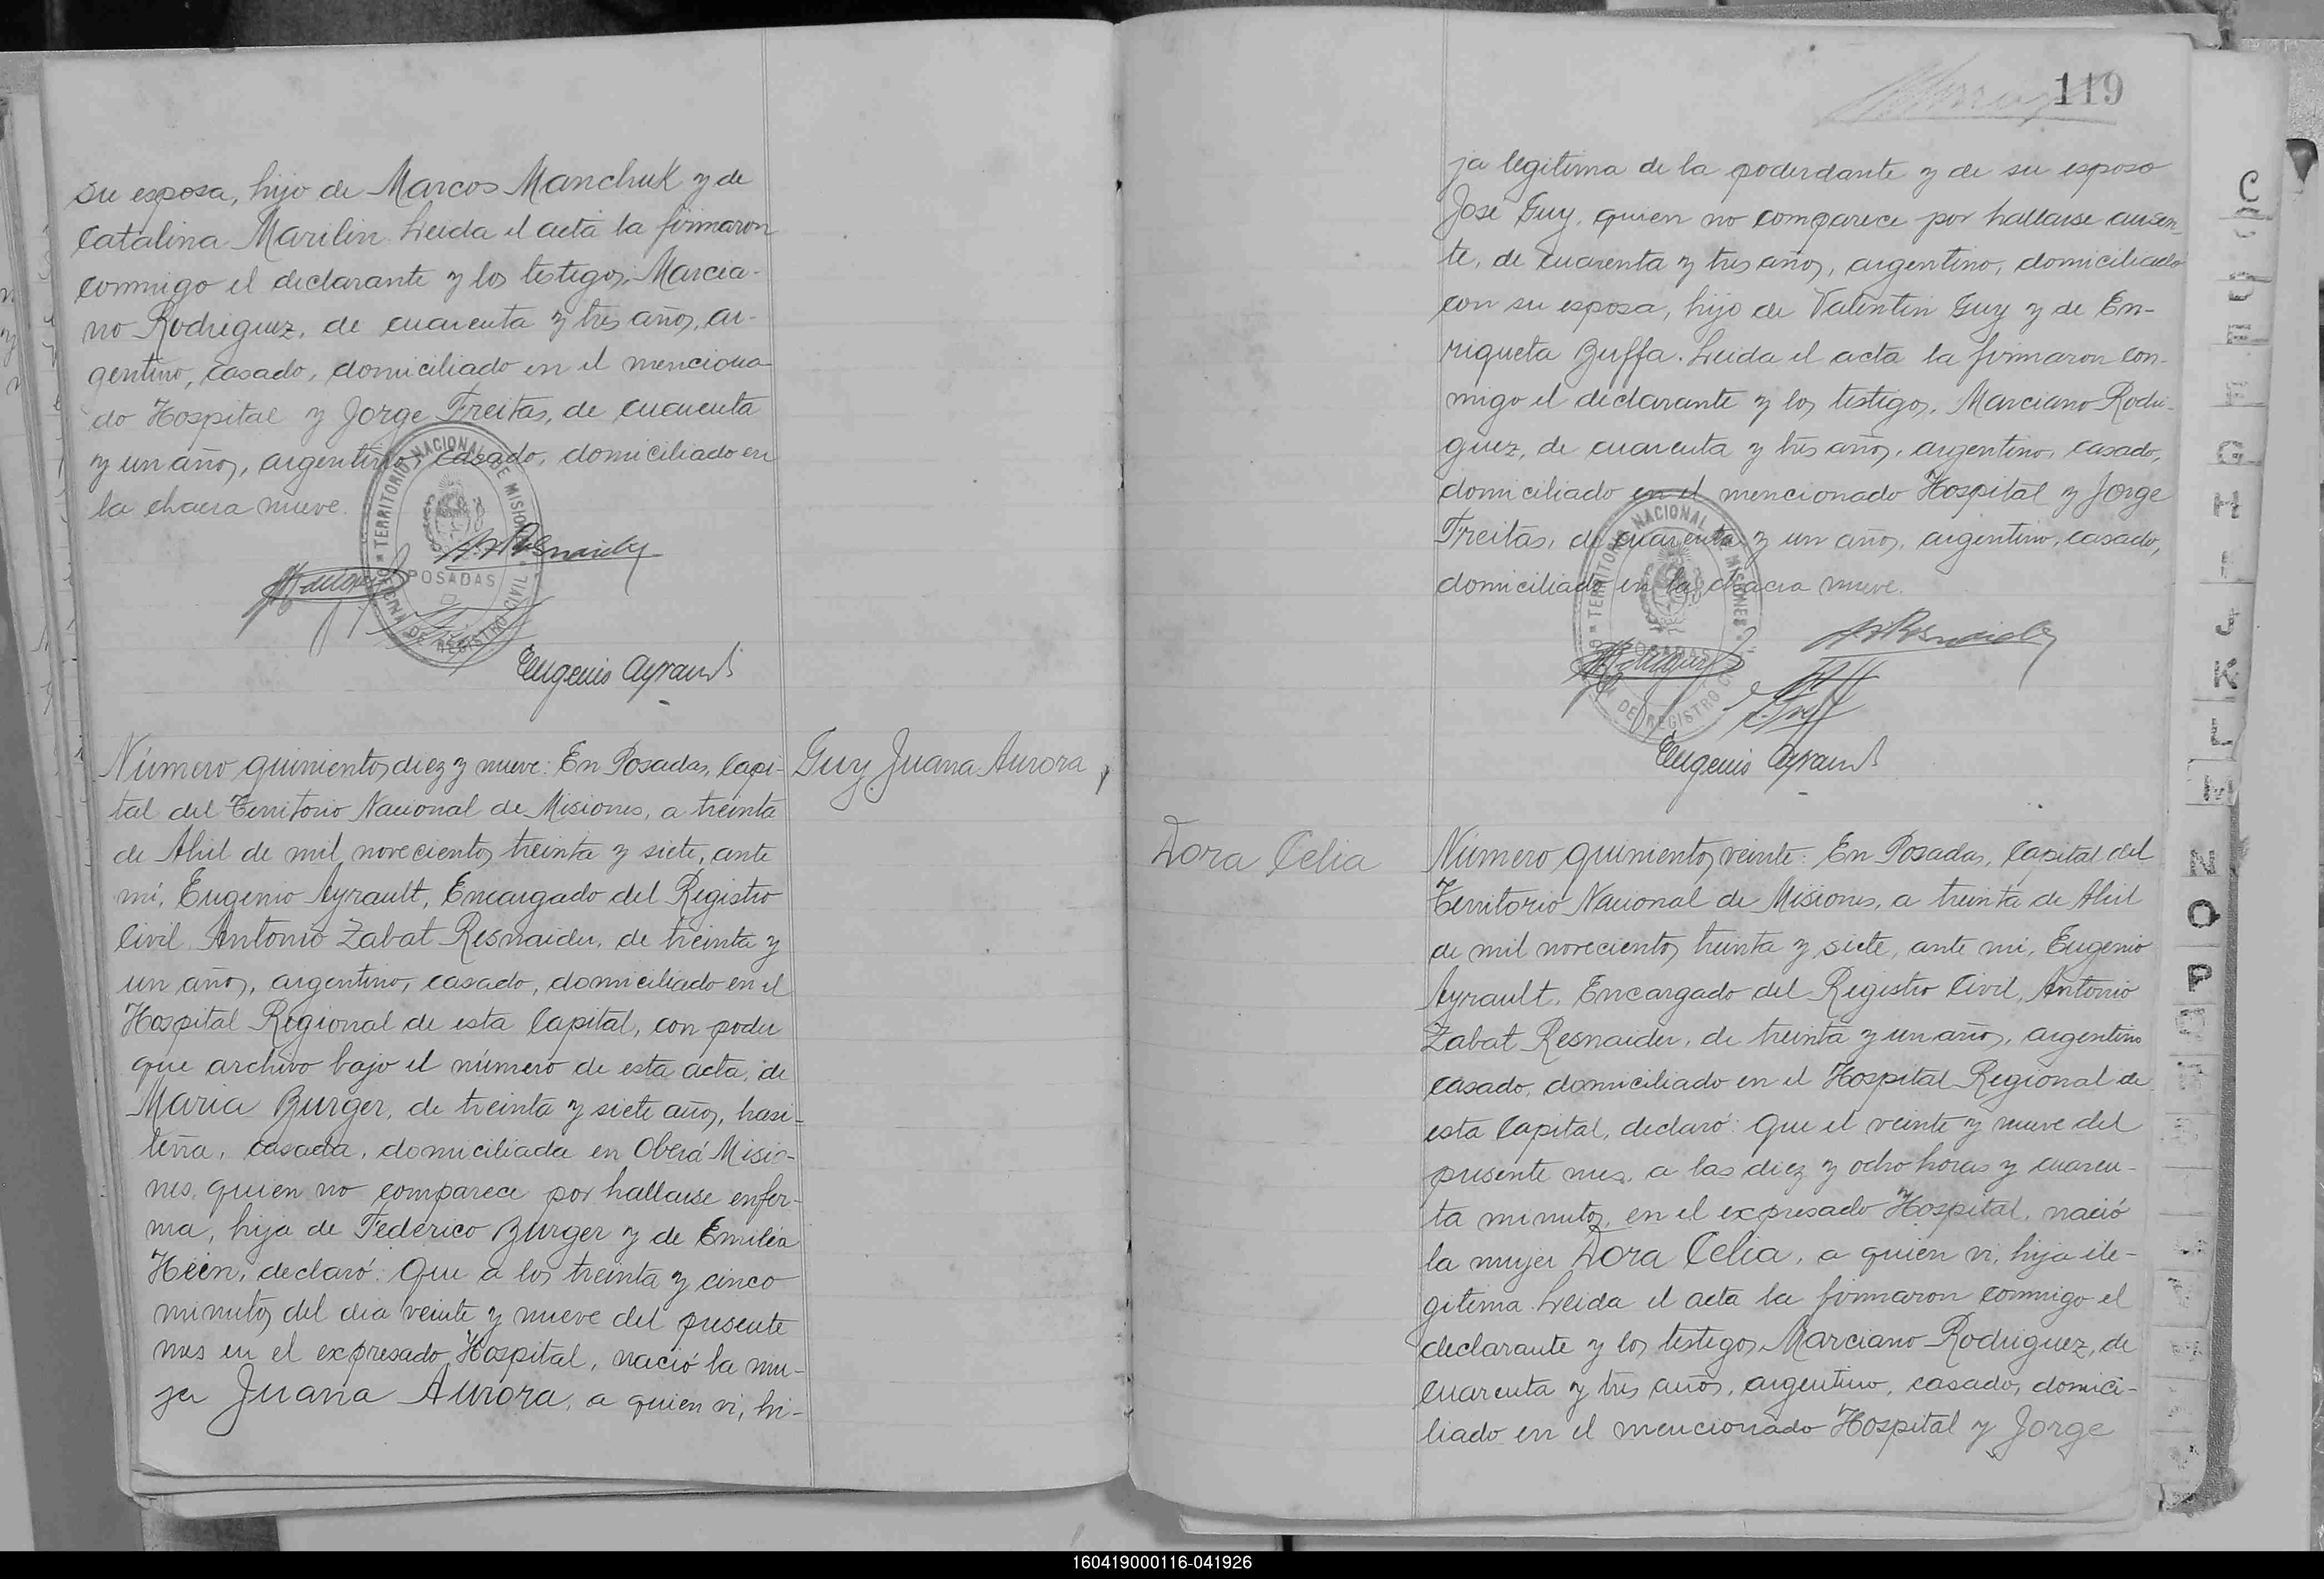 su esposa, hijo de Marcos Manchuk y de
Catalina Marilin. Leida el acta la firmaron
conmigo el declarante y los testigos, Marcia-
no Rodriguez, de cuarenta y tres años, ar-
gentino, casado, domiciliado en el menciona-
do Hospital y Jorge Freitas, de cuarenta
y un años, argentino, casado, domiciliado en
la chacra nueve.
TERRITORIO NACIONAL DE MISIONES
POSADAS
OFICINA DE REGISTRO CIVIL
Eugenio Ayrault
Número quinientos diez y nueve: En Posadas, Capi-
tal del Territorio Nacional de Misiones, a treinta
de Abril de mil novecientos treinta y siete, ante
mí, Eugenio Ayrault, Encargado del Registro
Civil, Antonio Zabat Resnaider, de treinta y
un años, argentino, casado, domiciliado en el
Hospital Regional de esta Capital, con poder
que archivo bajo el número de esta acta, de
Maria Burger, de treinta y siete años, brasi-
leña, casada, domiciliada en Oberá Misio-
nes, quien no comparece por hallarse enfer-
ma, hija de Federico Burger y de Emilia
Hein, declaró: Que a los treinta y cinco
minutos del dia veinte y nueve del presente
mes en el expresado Hospital, nació la mu-
jer Juana Aurora, a quien vi, hi-
Guy Juana Aurora
119
ja legitima de la poderdante y de su esposo
José Guy, quien no comparece por hallarse ausen-
te, de cuarenta y tres años, argentino, domiciliado
con su esposa, hijo de Valentin Guy y de En-
riqueta Buffa. Leida el acta la firmaron con-
migo el declarante y los testigos, Marciano Rodri-
guez, de cuarenta y tres años, argentino, casado,
domiciliado en el mencionado Hospital y Jorge
Freitas, de cuarenta y un años, argentino, casado,
domiciliado en la chacra nueve.
TERRITORIO NACIONAL DE MISIONES
POSADAS
DE REGISTRO CIVIL
Eugenio Ayrault
Dora Celia
Número quinientos veinte: En Posadas, Capital del
Territorio Nacional de Misiones, a treinta de Abril
de mil novecientos treinta y siete, ante mi, Eugenio
Ayrault, Encargado del Registro Civil, Antonio
Zabat Resnaider, de treinta y un años, argentino
casado, domiciliado en el Hospital Regional de
esta Capital, declaró: Que el veinte y nueve del
presente mes, a las diez y ocho horas y cuaren-
ta minutos, en el expresado Hospital, nació
la mujer Dora Celia, a quien vi, hija ile-
gitima. Leida el acta la firmaron conmigo el
declarante y los testigos, Marciano Rodriguez, de
cuarenta y tres años, argentino, casado, domici-
liado en el mencionado Hospital y Jorge
C
E
F
G
H
I
J
K
L
M
N
O
P
160419000116-041926